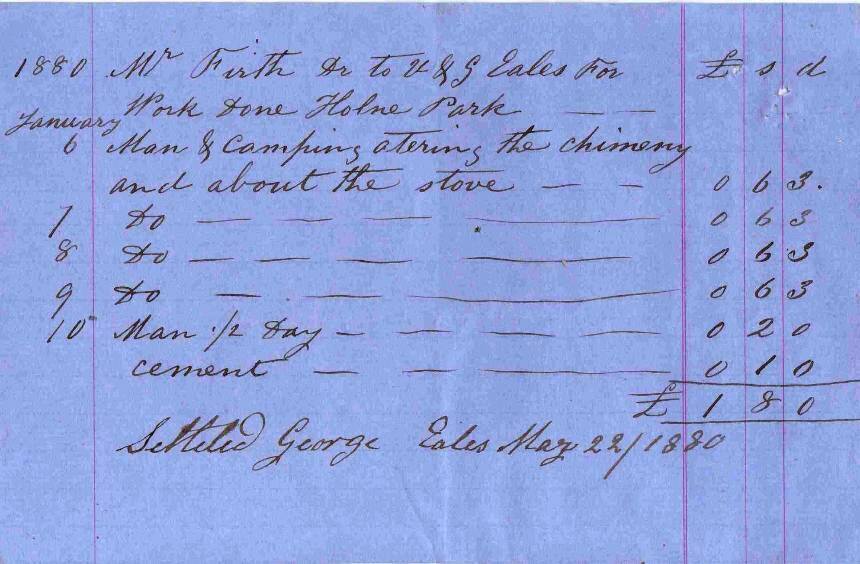 1880 Mr Firth Dr to & G Eales For £ s d
Work Done Holne Park — —
January
6 Man & Camping atering the chimeny
and about the stove — — 0 6 3.
7 Do — — — — — 0 6 3
8 Do — — — — — 0 6 3
9 Do — — — 0 6 3
10 Man 1/2 Day — — — — — 0 2 0
cement — — — — — 0 1 0
£ 1 8 0
Setteled George Eales May 22/1880